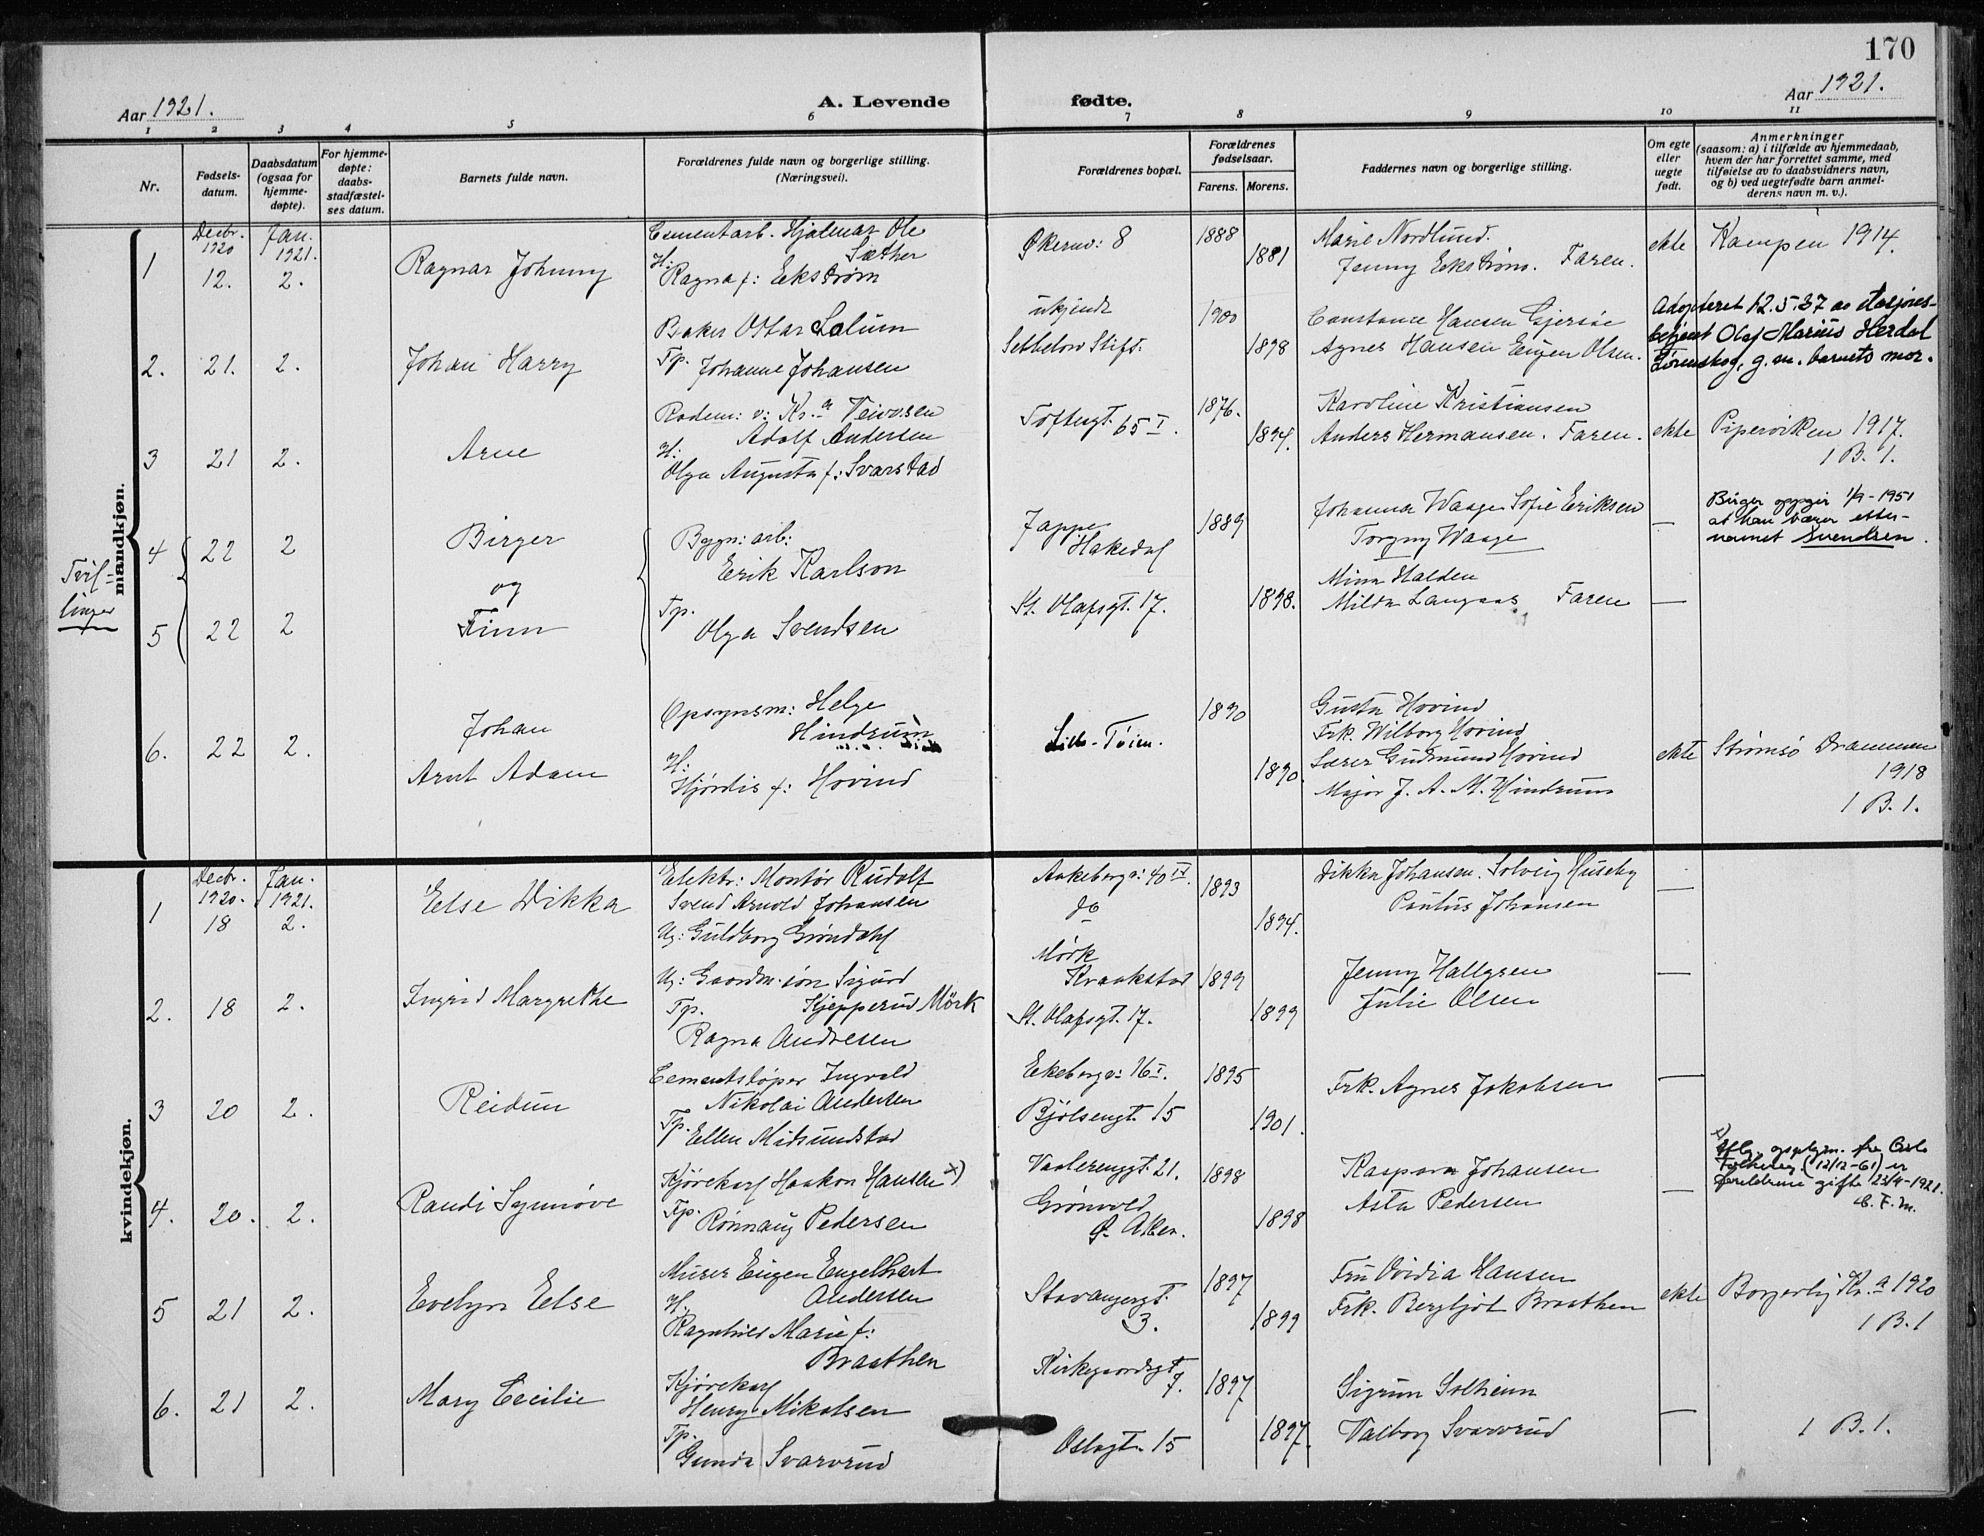 170
Aar 1921.
A. Levende fødte.
Aar 1921.
1 2 3 4 5 6 7 8 9 10 11
Nr.
Fødsels-
datum.
Daabsdatum
(ogsaa for
hjemme-
døpte).
For hjemme-
døpte:
daabs-
stadfæstel-
ses datum.
Barnets fulde navn.
Forældrenes fulde navn og borgerlige stilling.
(Næringsvei).
Forældrenes bopæl.
Forældrenes
fødselsaar.
Farens. Morens.
Faddernes navn og borgerlige stilling.
Om egte
eller
uegte
født.
Anmerkninger
(saasom: a) i tilfælde av hjemmedaab,
hvem der har forrettet samme, med
tilføielse av to daabsvidners navn,
og b) ved uegtefødte barn anmel-
derens navn m. v.).
mandkjøn.
1
Decbr.
1920
12.
Jan.
1921.
2.
Ragnar Johnny
Cementarb. Hjalmar Ole
Sæther
H:
Ragna f: Eekstrøm
Økernv: 8
1888
1881
Marie Nordlund.
Jenny Eekstrøm. Faren.
ekte
Kampen 1914.
2. 21. 2.
Johan Harry
Baker Ottar Solum
Tp. Johanne Johansen
ukjendt
Sebbelow Stift.
1900
1898
Constance Hansen Gjersøe
Agnes Hansen Eugen Olsen.
Adopteret 12.5.37 av stasjons-
betjent Olaf Marius Herdal
Lørenskog, g. m. barnets mor.
3 21 2.
Arne
Rodem: v: Kr.a Veivæsen
Adolf Andersen
H:
Olga Augusta f: Svarstad
Toftesgt. 65 I.
1876.
1894.
Karoline Kristiansen
Anders Hermansen. Faren.
ekte
Piperviken 1917.
1 B. 1.
Tvil-
linger
4 22 2
Birger
og
5 22 2
Finn
Bygn: arb:
Erik Karlson
Tp.
Olga Svendsen
Jappe
Hakedal
St. Olafsgt. 17.
1889
1898.
Johanna Waage Sofie Eriksen
Torgny Waage
Minn Halden
Milda Langaas Faren
—
—
Birger oppgir 1/9-1951
at han bærer etter-
navnet Svendsen.
6. 22 2.
Johan
Arnt Adam
Opsynsm: Helge
Hindrum
H:
Hjørdis f: Hovind
Lille-Tøien.
1890
1890.
Gusta Hovind
Frk. Wilborg Hovind
Gudmund Hovind
Major J. A. M. Hindrum
ekte
Strømsø Drammen
1918
1 B. 1.
kvindekjøn.
1
Decbr.
1920.
18
Jan.
1921.
2.
Else Dikka
Elektr: Montør Rudolf
Svend Arnold Johansen
Ug: Guldborg Grøndahl
Aakebergv: 40 IV.
do
1893
1894.
Dikka Johansen. Solveig Huseby
Paulus Johansen
—
2. 18 2.
Ingrid Margrethe
Ug: Gaardm. søn Sigurd
Kjepperud Mörk
Tp.
Ragna Andresen
Mørk
Kraakstad
St. Olafsgt. 17.
1899
1899
Jenny Hallgren
Julie Olsen
—
3 20 2.
Reidun
Cementstøper Ingvald
Nikolai Andersen
Tp. Ellen Midsundstad
Ekebergv: 16 I.
Bjølsengt. 15
1895
1901.
Frk. Agnes Jakobsen
—
4. 20. 2.
Randi Synnøve
Kjørekarl Haakon Hansen x)
Tp. Rønnaug Pedersen
Vaalerenggt. 21.
Grønvold
Ø. Aker.
1898
1898
Kaspara Johansen
Asta Pedersen
—
x)
Iflg. opplysn. fra Oslo
Folkereg. (12/12-61) er
foreldrene gifte 23/4-1921.
5 21 2.
Evelyn Else
Murer Eugen Engelhart
Andersen
H.
Ragnhild Marie f:
Braathen
Stavangergt.
3.
1897
1899
Fru Ovidia Hansen
Frk. Bergljot Braathen
ekte
Borgerlig Kr.a 1920
1 B. 1
6. 21 2.
Mary Cecilie
Kjørekarl
Henry Mikalsen
Tp.
Gunda Svarvrud
Kirkegaardsgt
7.
Oslogt. 15
1897
1897.
Sigrun Solheim
Valborg Svarvrud
—
1 B. 1.